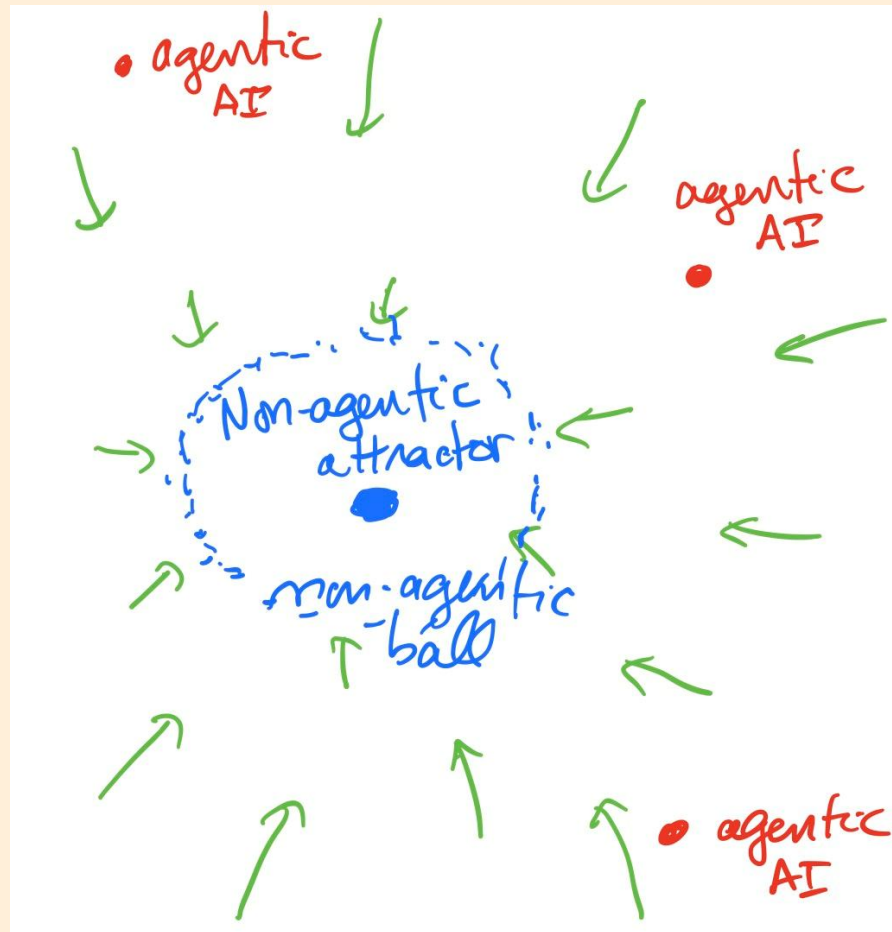 agentic
AI
agentic
AI
Non-agentic
attractor
non-agentic
ball
agentic
AI